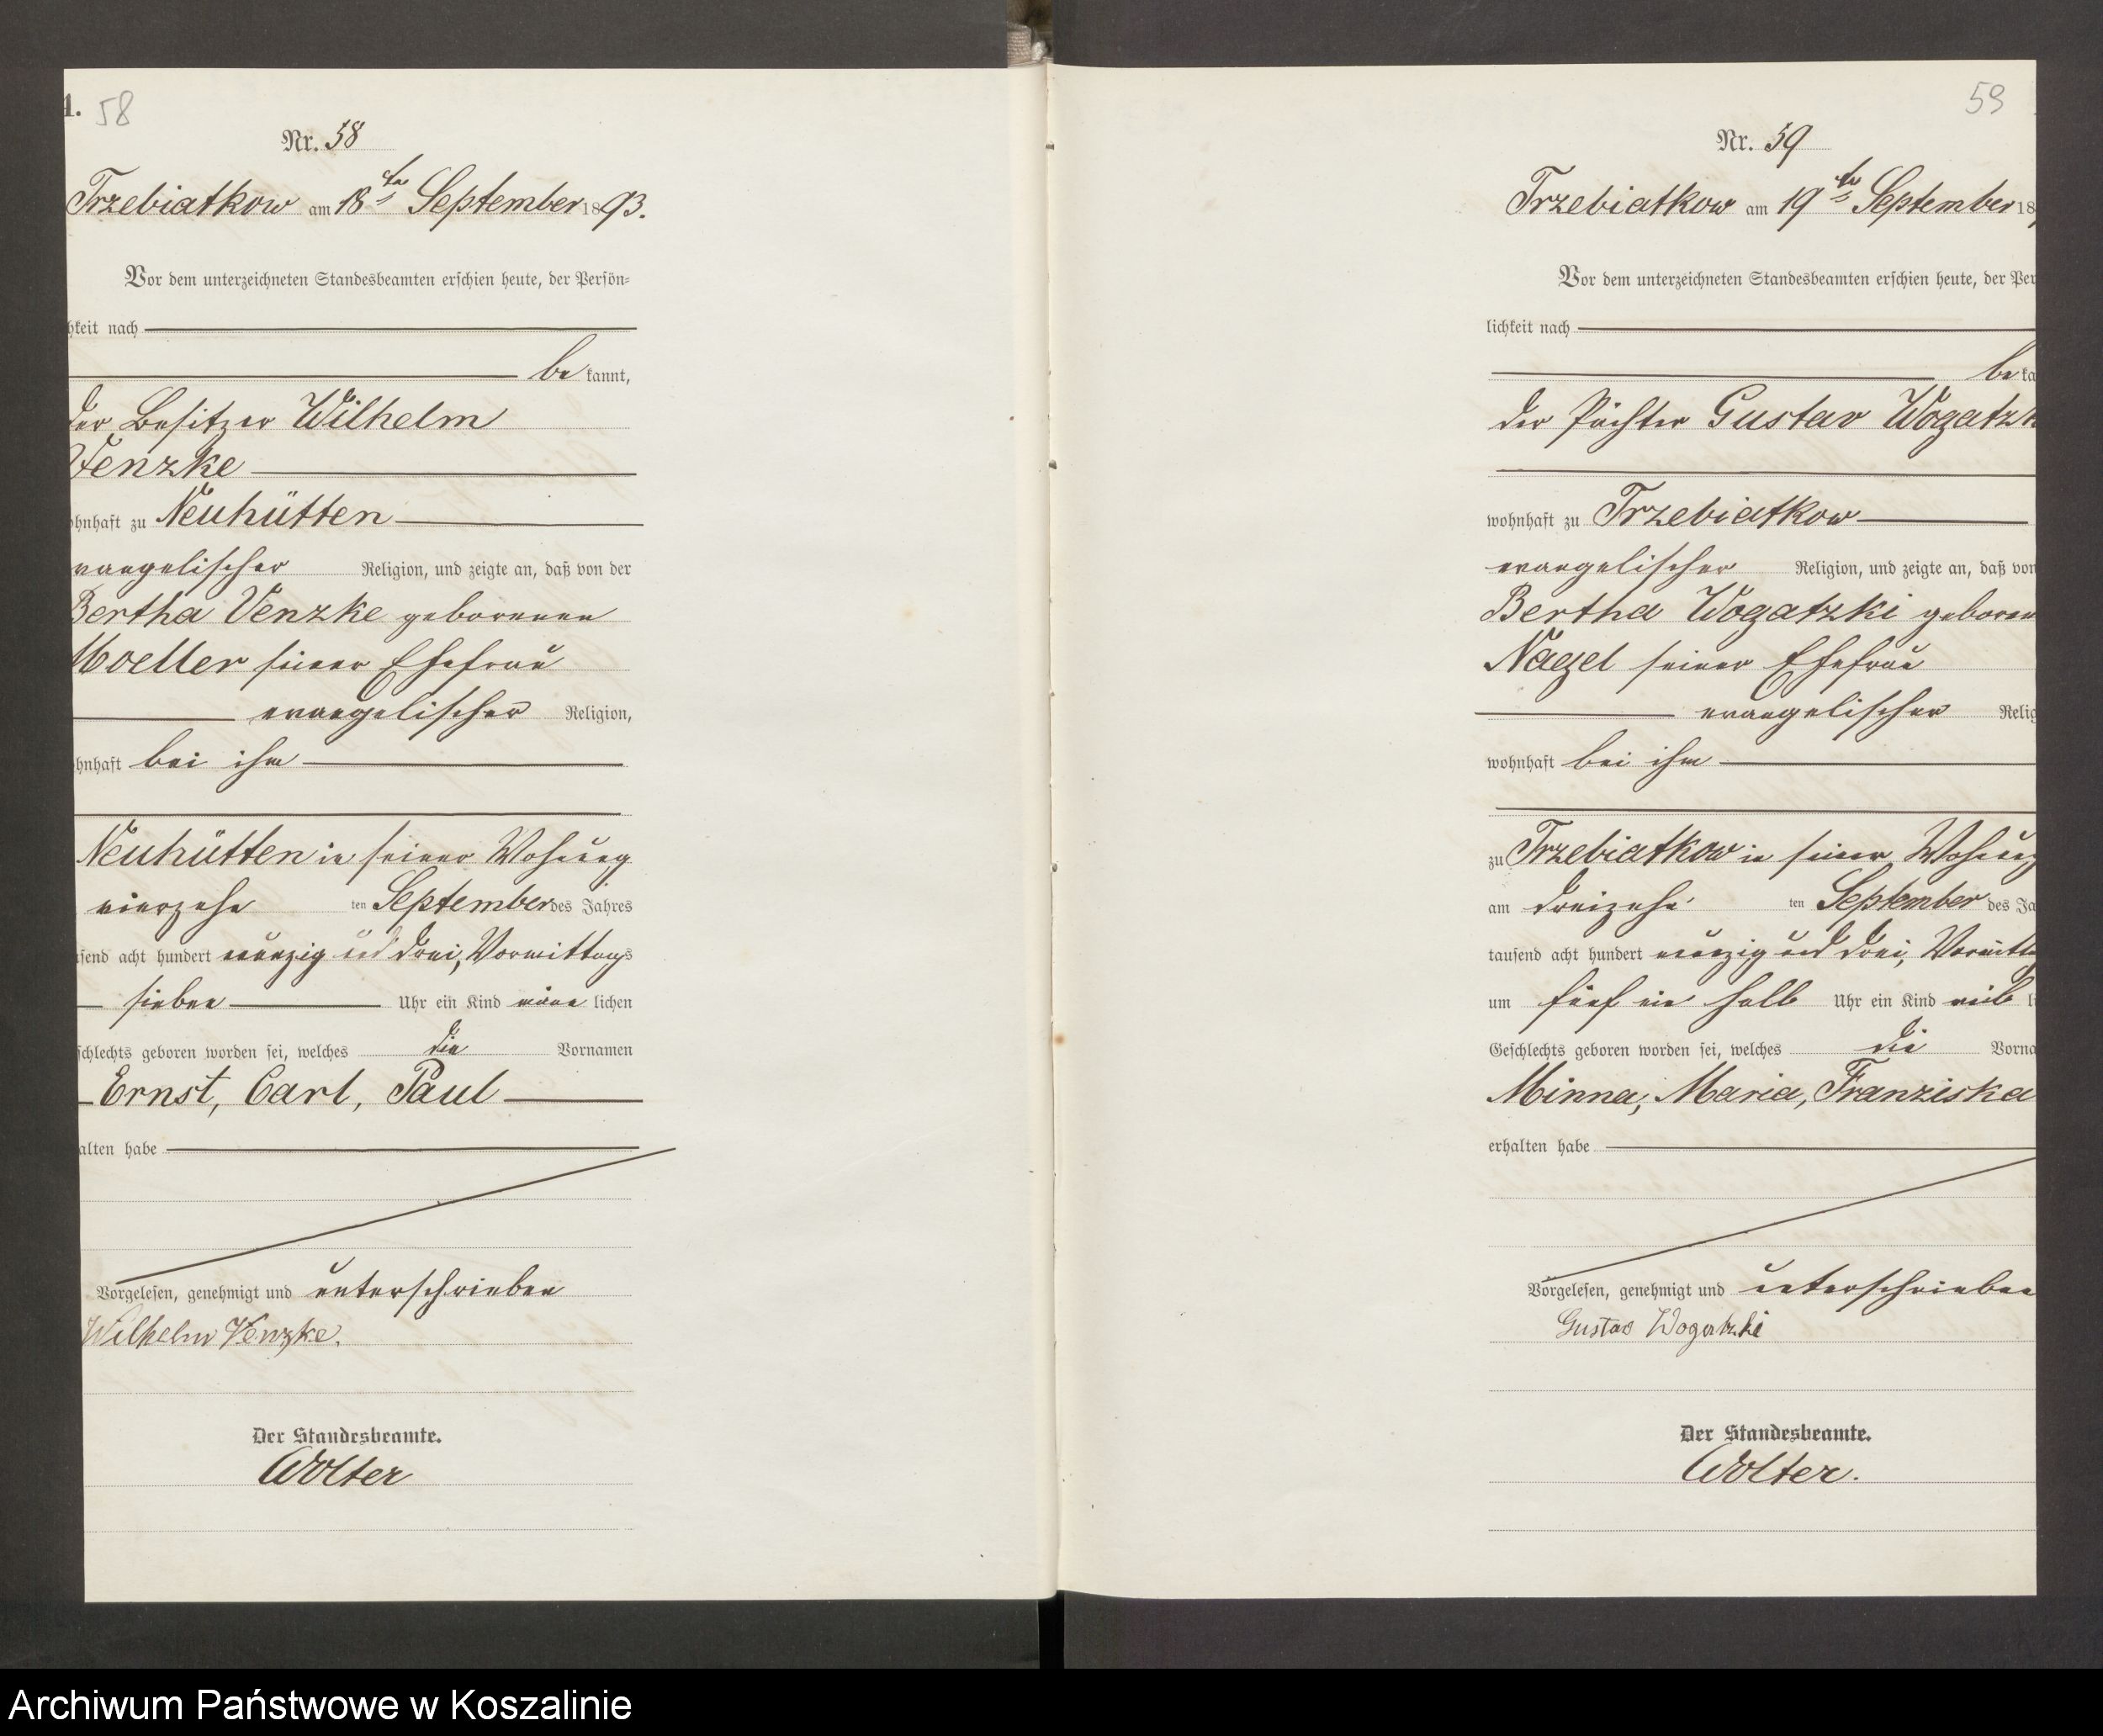 1. 58
Nr. 58
Trzebiatkow am 18ten September 1893.
Vor dem unterzeichneten Standesbeamten erschien heute, der Persön-
hkeit nach
be kannt,
der Besitzer Wilhelm
Venzke
ohnhaft zu Neuhütten
vangelischer Religion, und zeigte an, daß von der
Bertha Venzke geborenen
Moeller seiner Ehefrau
evangelischer Religion,
hnhaft bei ihm
Neuhütten in seiner Wohnung
vierzehn ten September des Jahres
usend acht hundert neunzig und drei, Vormittags
sieben Uhr ein Kind männ lichen
schlechts geboren worden sei, welches die Vornamen
Ernst, Carl, Paul
alten habe
Vorgelesen, genehmigt und unterschrieben
Wilhelm Venzke.
Der Standesbeamte.
Wolter
59
Nr. 59
Trzebiatkow am 19ten September 18
Vor dem unterzeichneten Standesbeamten erschien heute, der Per
lichkeit nach
be ka
der Pächter Gustav Wogatzk
wohnhaft zu Trzebiatkow
evangelischer Religion, und zeigte an, daß von
Bertha Wogatzki geboren
Nagel seiner Ehefrau
evangelischer Relig
wohnhaft bei ihm
zu Trzebiatkow in seiner Wohnung
am dreizehn ten September des Ja
tausend acht hundert neunzig und drei, Vormitta
um fünf ein halb Uhr ein Kind weib li
Geschlechts geboren worden sei, welches die Vorna
Minna, Maria, Franziska
erhalten habe
Vorgelesen, genehmigt und unterschrieben
Gustav Wogatzki
Der Standesbeamte.
Wolter.
Archiwum Państwowe w Koszalinie